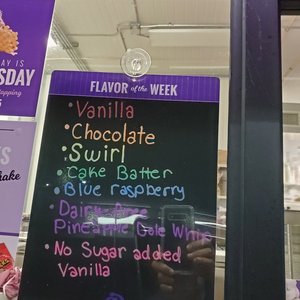 AY IS
SDAY
topping
FLAVOR of the WEEK
• Vanilla
• Chocolate
• Swirl
• Cake Batter
• Blue raspberry
• Dairy free
Pineapple Dole Whip
• No Sugar added
Vanilla
ES
hake